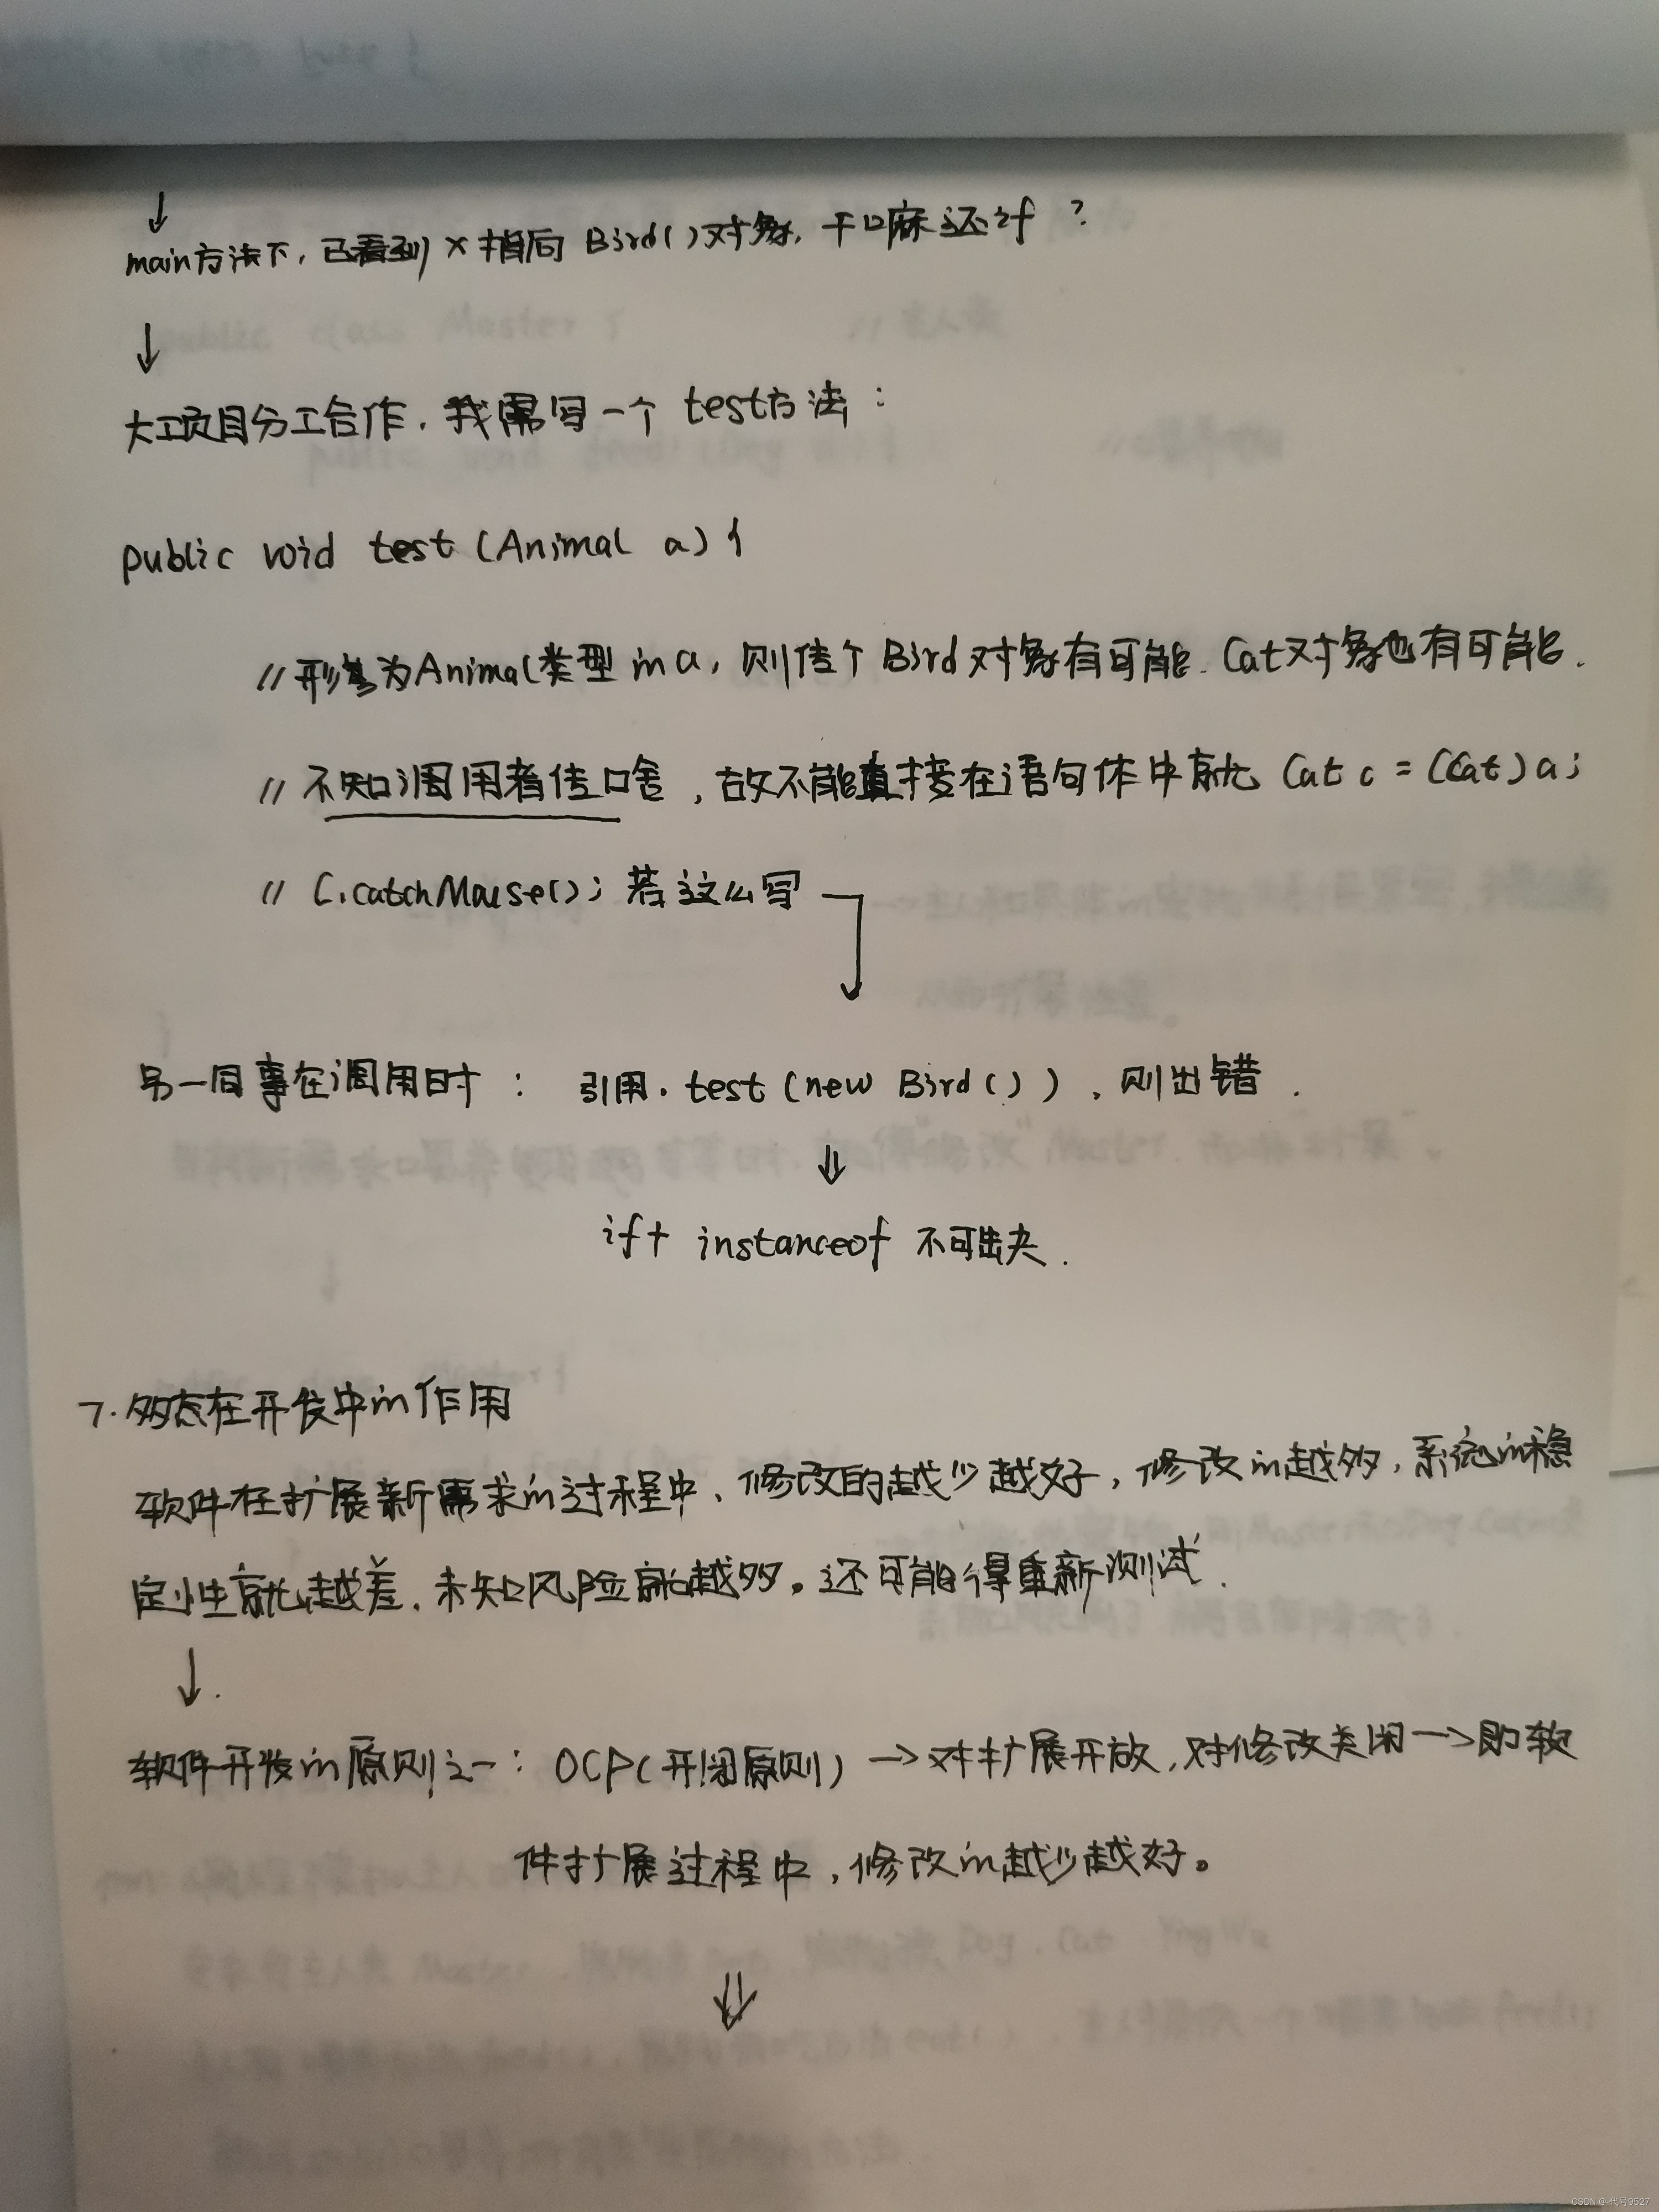 ↓
main方法下，已看到x指向Bird()对象，干嘛还if？
↓
大项目分工合作，我需写一个test方法：
public void test(Animal a){
//形参为Animal类型的a，则传个Bird对象有可能，Cat对象也有可能.
//不知调用者传啥，故不能直接在语句体中就 Cat c = (Cat)a;
// C.catchMouse(); 若这么写
另一同事在调用时： 引用.test(new Bird())，则出错.
⇓
if+ instanceof 不可出失.
7.多态在开发中的作用
软件在扩展新需求的过程中，修改的越少越好，修改的越多，系统的稳
定性就越差，未知风险就越多。还可能得重新测试.
↓.
软件开发的原则之一：OCP(开闭原则)→对扩展开放，对修改关闭→即软
件扩展过程中，修改的越少越好。
⇓
CSDN @代号9527